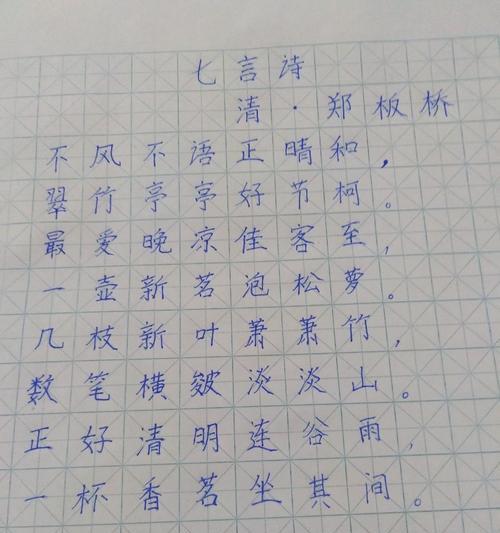 七言诗
清·郑板桥
不风不语正晴和，
翠竹亭亭好节柯。
最爱晚凉佳客至，
一壶新茗泡松萝。
几枝新叶萧萧竹，
数笔横皴淡淡山。
正好清明连谷雨，
一杯香茗坐其间。